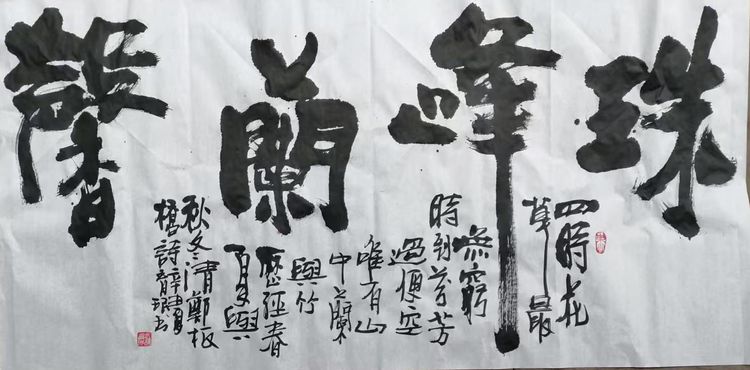 珠峰蘭馨
四時花
草最
無窮
時到芬芳
過便空
唯有山
中蘭
與竹
歷經春
夏與
秋冬清鄭板
橋詩